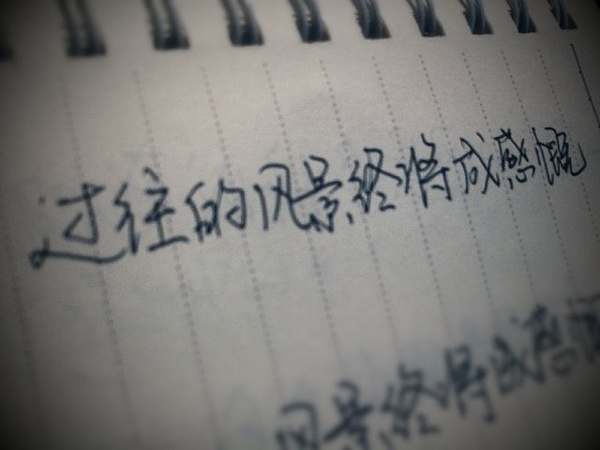 过往的风景终将成感慨
风景终将成感慨